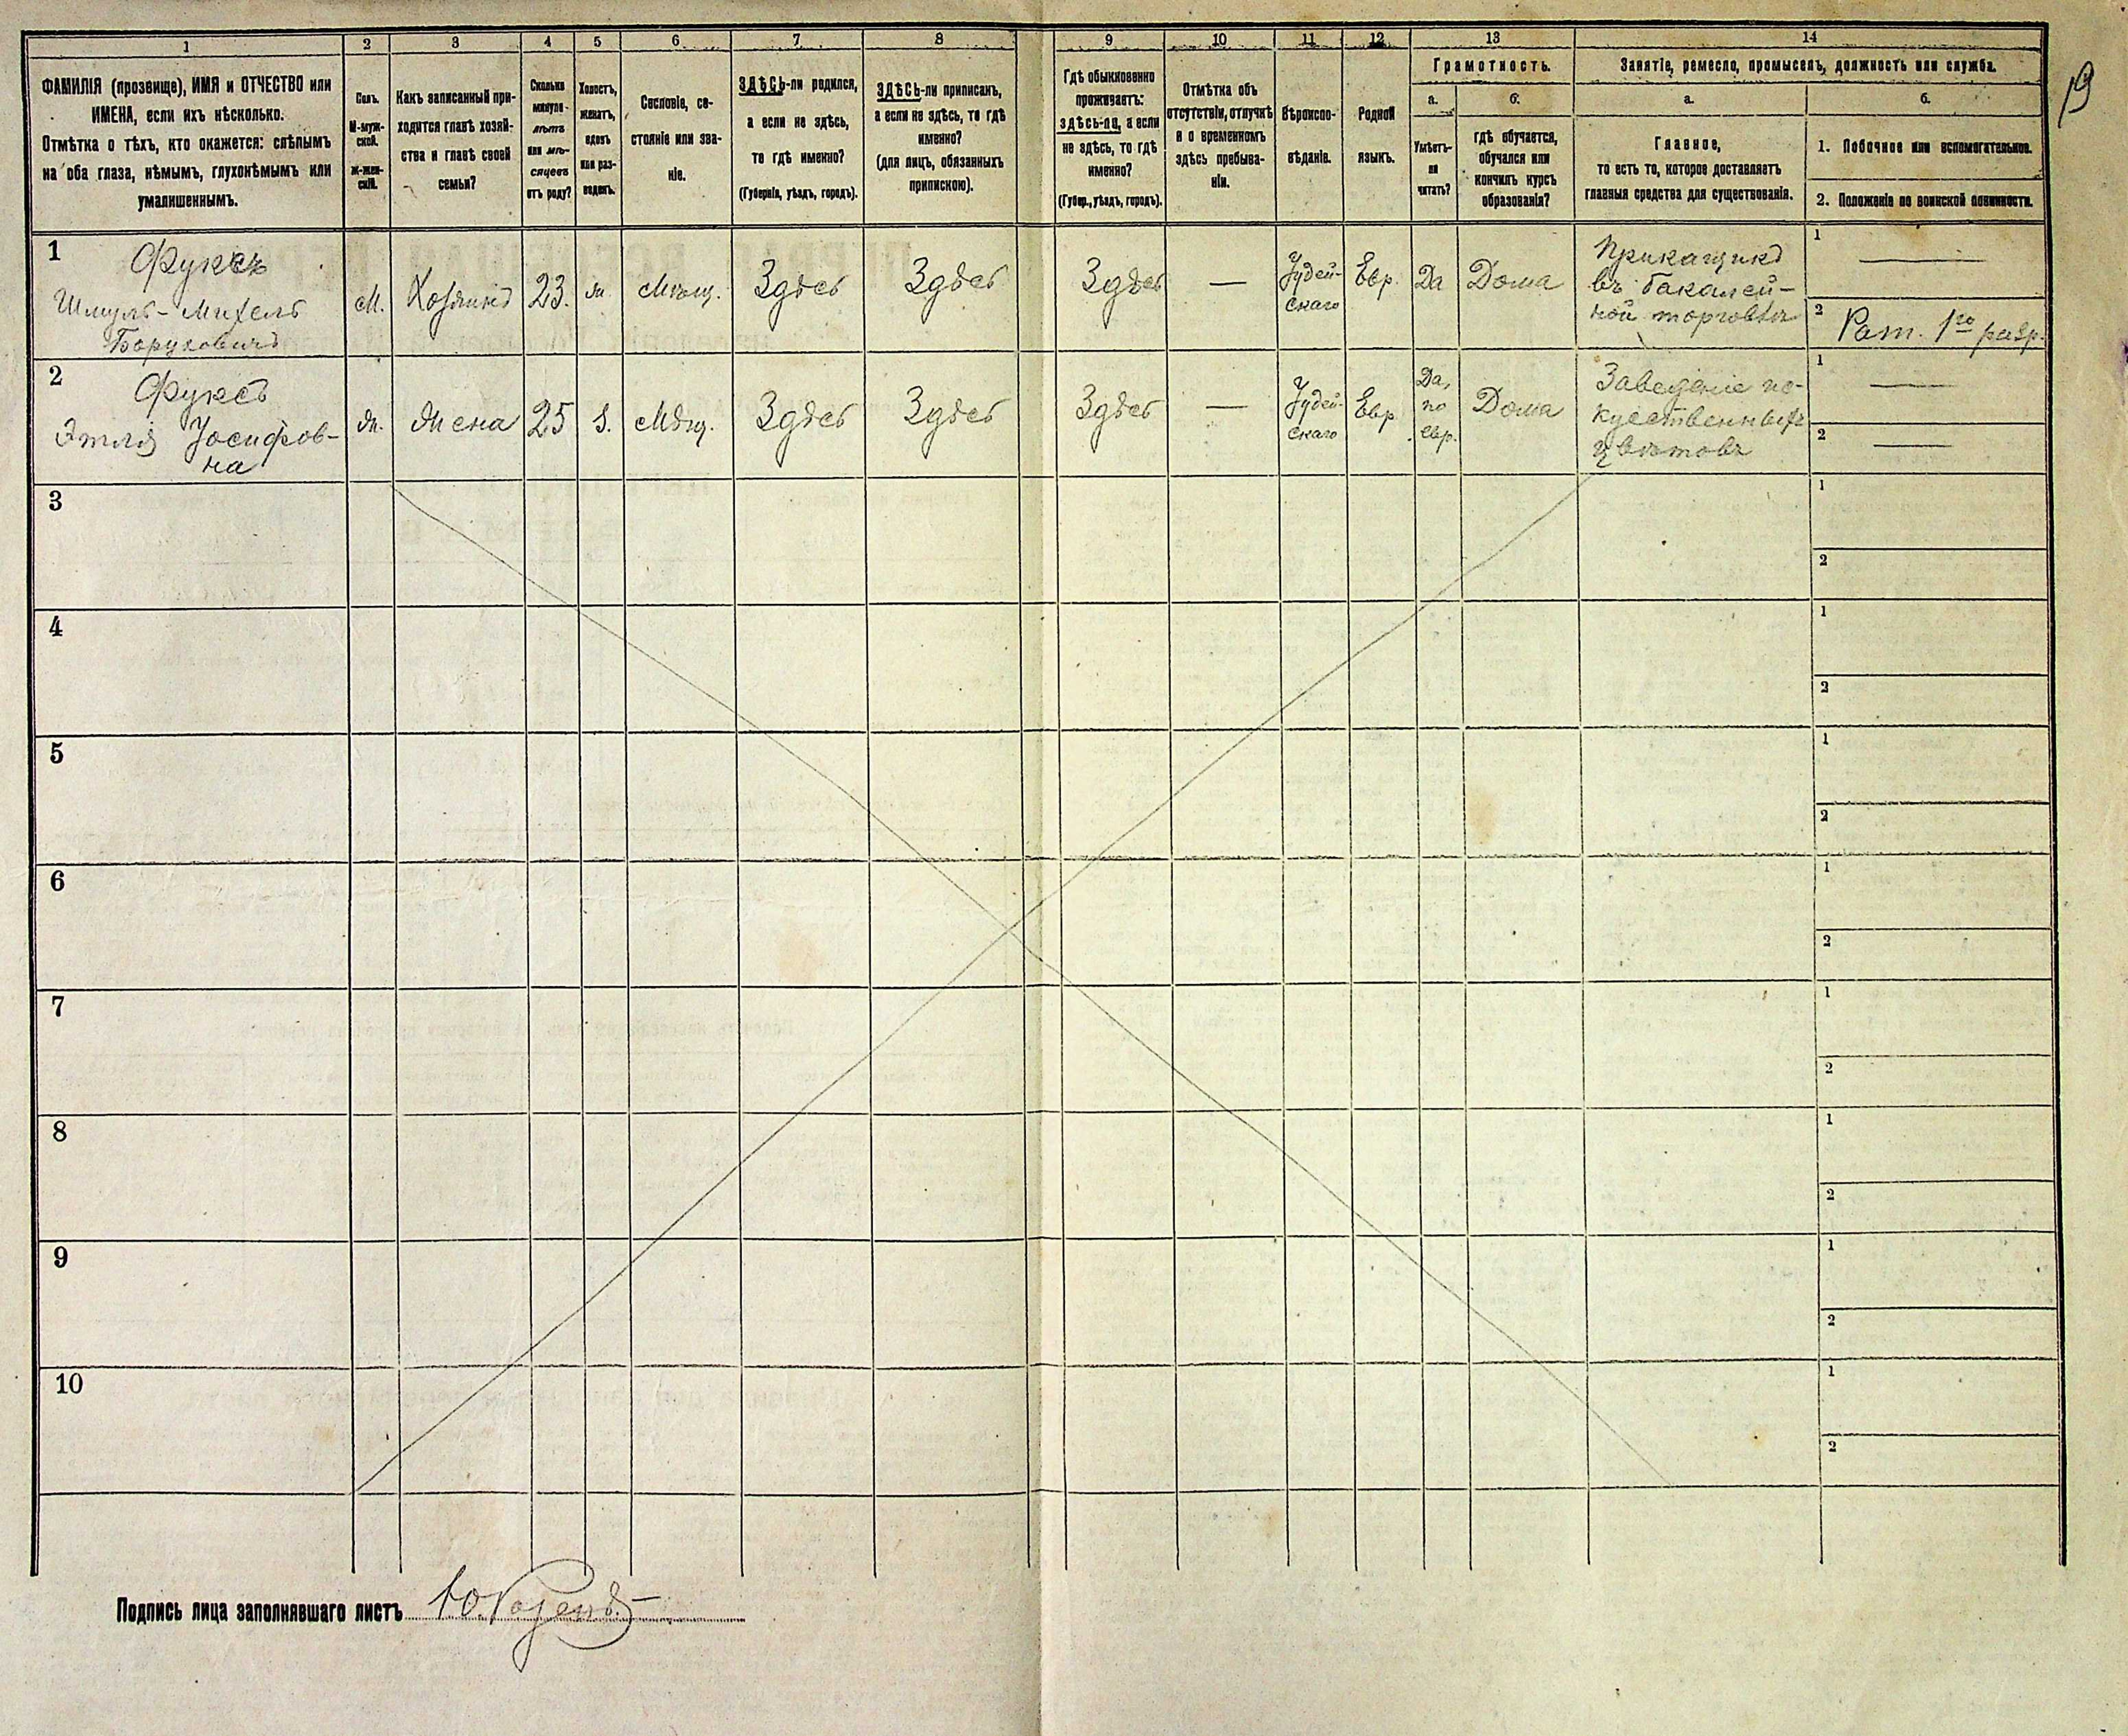 1
2
3
4
5
6
7
8
9
10
11
12
13
14
ФАМИЛІЯ (прозвище), ИМЯ и ОТЧЕСТВО или
ИМЕНА, если ихъ нѣсколько.
Отмѣтка о тѣхъ, кто окажется: слѣпымъ
на оба глаза, нѣмымъ, глухонѣмымъ или
умалишеннымъ.
Полъ.
М-муж-
ской.
Ж-жен-
скій.
Какъ записанный при-
ходится главѣ хозяй-
ства и главѣ своей
семьи?
Сколько
минуло
лѣтъ
или мѣ-
сяцевъ
отъ роду?
Холостъ,
женатъ,
вдовъ
или раз-
веденъ.
Сословіе, со-
стояніе или зва-
ніе.
ЗДѢСЬ-ли родился,
а если не здѣсь,
то гдѣ именно?
(Губернія, уѣздъ, городъ).
ЗДѢСЬ-ли приписан,
а если не здѣсь, то гдѣ
именно?
(для лицъ, обязанныхъ
припискою).
Гдѣ обыкновенно
проживаетъ:
здѣсь-ли, а если
не здѣсь, то гдѣ
именно?
(Губер., уѣздъ, городъ).
Отмѣтка объ
отсутствіи, отлучкѣ
и о временномъ
здѣсь пребыва-
ніи.
Вѣроиспо-
вѣданіе.
Родной
языкъ.
Грамотность.
а.
Умѣетъ-
ли
читать?
б.
гдѣ обучается,
обучался или
кончилъ курсъ
образованія?
Занятіе, ремесло, промыселъ, должность или служба.
а.
Главное,
то есть то, которое доставляетъ
главныя средства для существованія.
б.
1. Побочное или вспомогательное.
2. Положеніе по воинской повинности.
19
1
Фуксъ
Шмуль-Михель
Боруховичъ
М.
Хозяинъ
23.
ж.
Мѣщ.
Здѣсь
Здѣсь
Здѣсь
—
Іудей-
скаго
Евр.
Да
Дома
Приказчикъ
въ бакалей-
ной торговлѣ
1
—
2
Рат. 1го разр.
2
Фуксъ
Этля Іосифов-
на
Ж.
Жена
25
з.
Мѣщ.
Здѣсь
Здѣсь
Здѣсь
—
Іудей-
скаго
Евр.
Да,
по
евр.
Дома
Заведеніе ис-
куственныхъ
цвѣтовъ
1
—
2
—
3
1
2
4
1
2
5
1
2
6
1
2
7
1
2
8
1
2
9
1
2
10
1
2
Подпись лица заполнявшаго листъ Ю. Розенъ